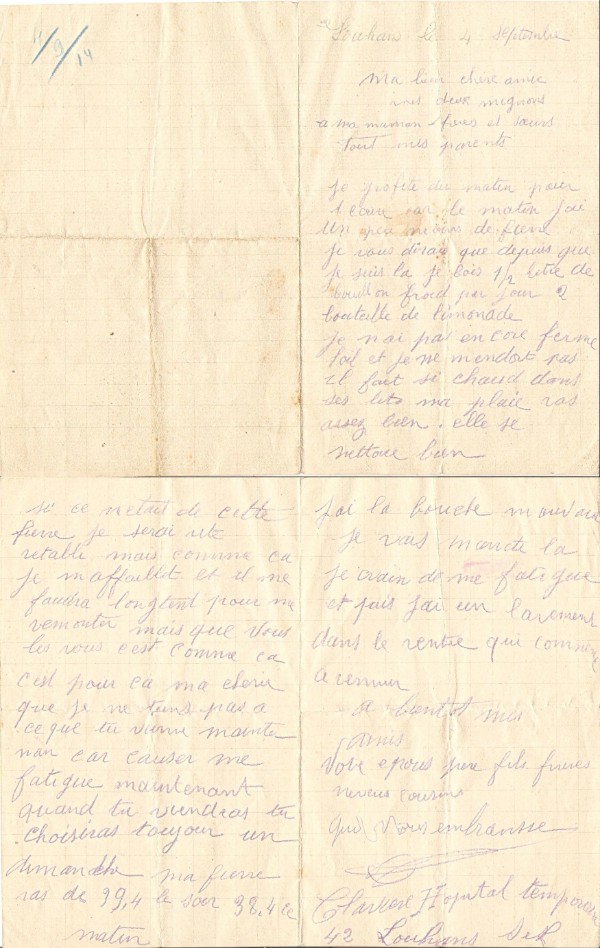 11/9/14
Louhans le 4 septembre
ma bien chere amie
mes deux mignons
a ma maman freres et sœurs
tout mes parents
je profite du matin pour
car le matin jai
un peu moins de fievre
je vous dirais que depuis que
je suis la je bois 1/2 litre de
bouillon froid par jour 2
bouteille de limonade
je nai pas encore ferme
loeil et je ne mendort pas
il fait si chaud dans
ses lits ma plaie vas
assez bien. elle se
nettoie bien
si ce netait de cette
fievre je serai vite
retabli mais comme ca
je maffaiblit et il me
faudra longtent pour me
remonter mais que voul
les vous cest comme ca
cest pour ca ma cherie
que je ne tiens pas a
ce que tu vienne mainte
nan car causer me
fatigue maintenant
quand tu viendras tu
choisiras toujour un
dimanche ma fievre
vas de 39,4 le soir 38,4 le
matin
jai la bouche mauvaise
je vais la
je crain de me fatigue
et puis jai un lavement
dans le ventre qui commence
a remuer
a bientot mes
amis
Votre epous pere fils freres
neveus cousins
qui vous embrausse
Hopital temporaire
42 Louhans S et L